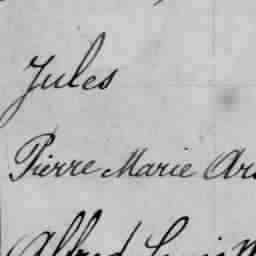 Jules
Pierre Marie Ar
Alfred Louis M